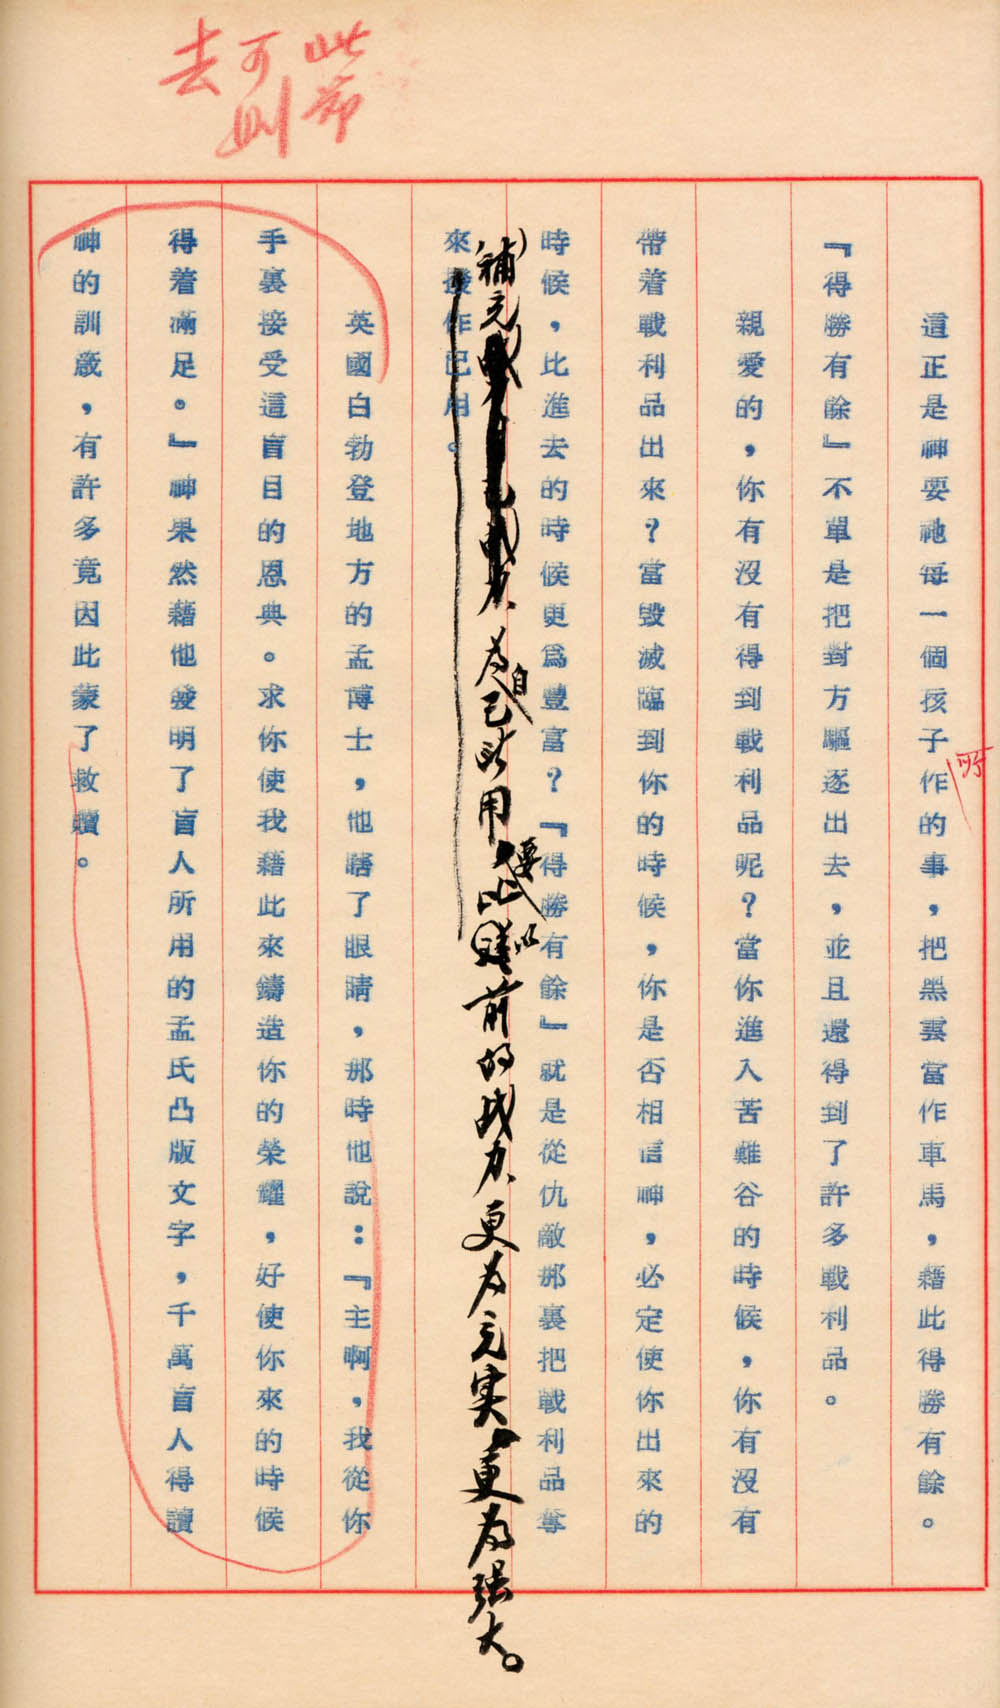 此節
可則
去
這正是神要祂每一個孩子作的事，把黑雲當作車馬，藉此得勝有餘。
所
『得勝有餘』不單是把對方驅逐出去，並且還得到了許多戰利品。
親愛的，你有沒有得到戰利品呢？當你進入苦難谷的時候，你有沒有
帶着戰利品出來？當毀滅臨到你的時候，你是否相信神，必定使你出來的
時候，比進去的時候更爲豐富？『得勝有餘』就是從仇敵那裏把戰利品奪
補充
力、为自己所用
要比
以前的战力、更为充实更为强大。
來撥作己用。
英國白勃登地方的孟博士，他瞎了眼睛，那時他說：『主啊，我從你
手裏接受這盲目的恩典。求你使我藉此來鑄造你的榮耀，好使你來的時候
得着滿足。』神果然藉他發明了盲人所用的孟氏凸版文字，千萬盲人得讀
神的訓蒇，有許多竟因此蒙了救贖。